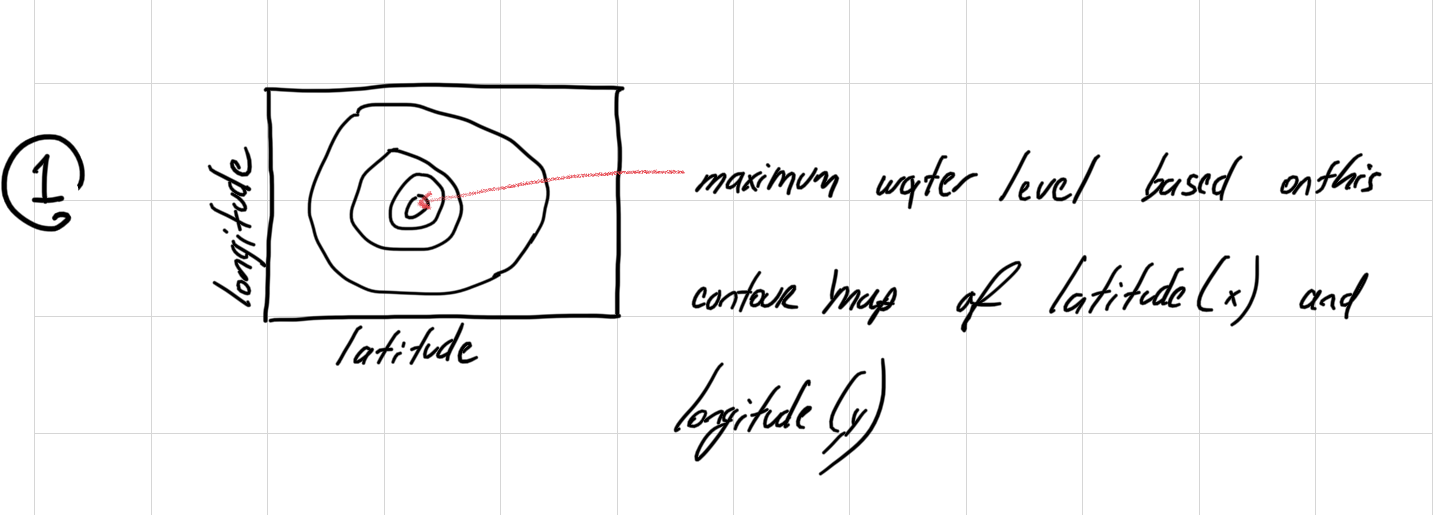 1
longitude
latitude
maximum water level based on this
contour map of latitude (x) and
longitude (y)